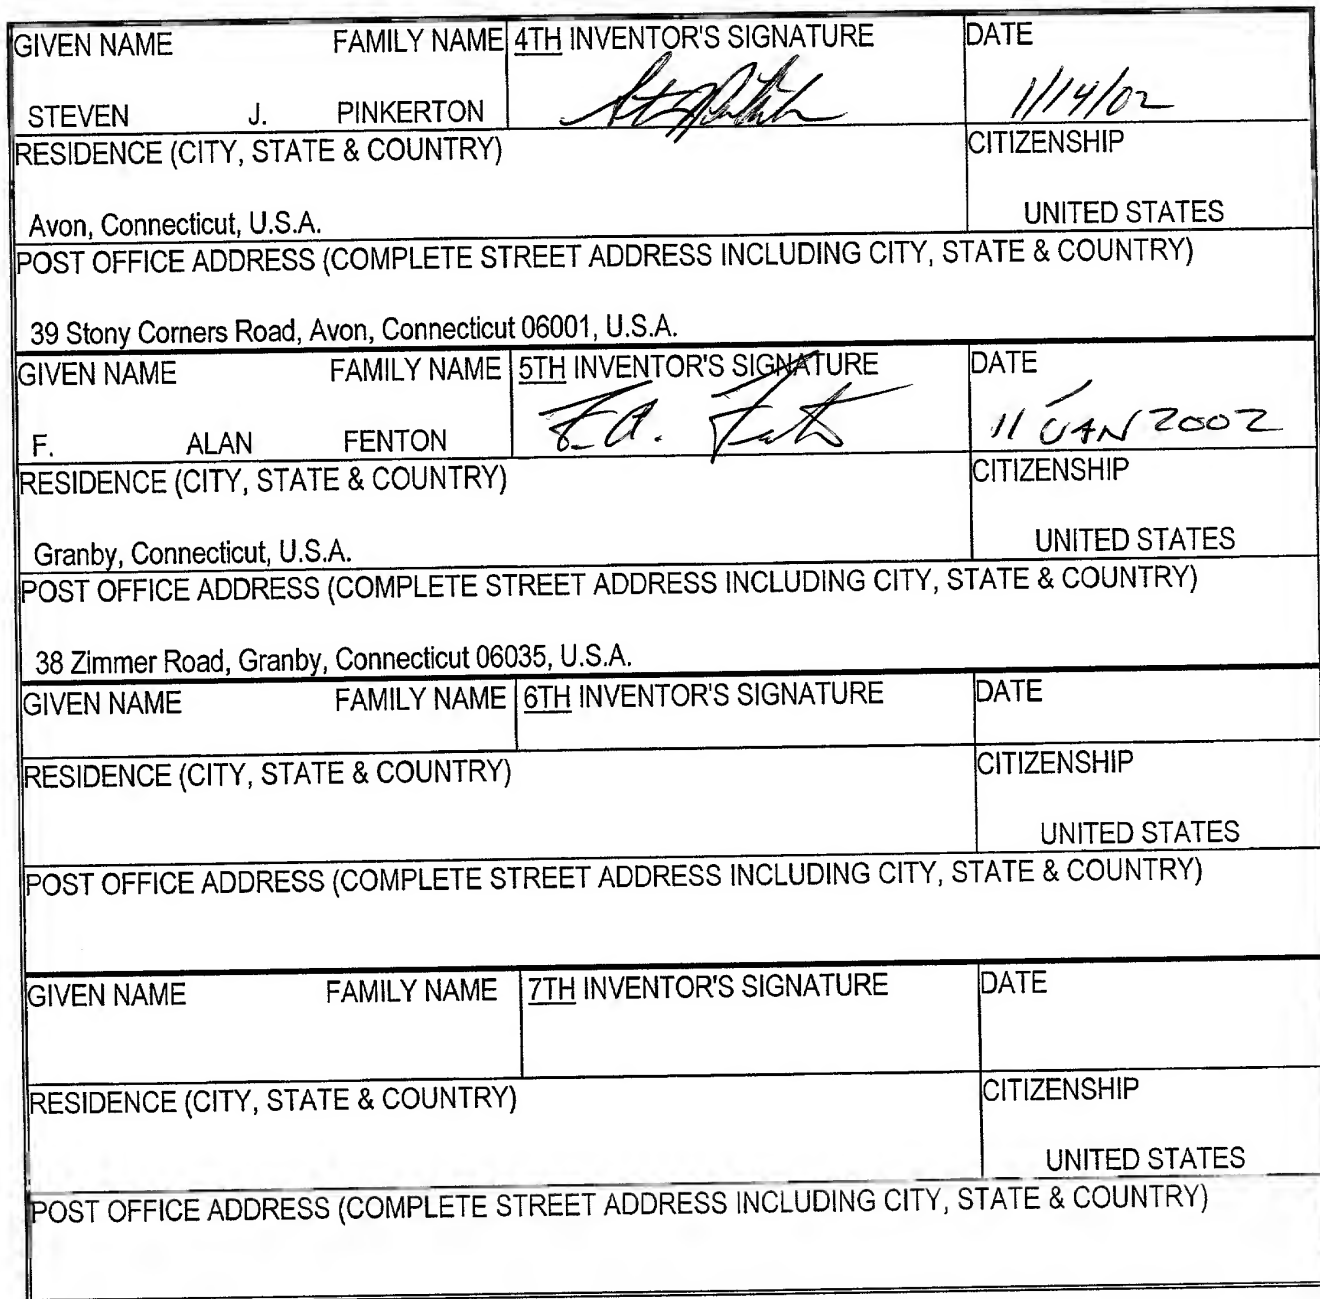 GIVEN NAME FAMILY NAME 4TH INVENTOR'S SIGNATURE DATE
STEVEN J. PINKERTON 1/14/02
RESIDENCE (CITY, STATE & COUNTRY) CITIZENSHIP
Avon, Connecticut, U.S.A. UNITED STATES
POST OFFICE ADDRESS (COMPLETE STREET ADDRESS INCLUDING CITY, STATE & COUNTRY)
39 Stony Corners Road, Avon, Connecticut 06001, U.S.A.
GIVEN NAME FAMILY NAME 5TH INVENTOR'S SIGNATURE DATE
F. ALAN FENTON F.A. 11 JAN 2002
RESIDENCE (CITY, STATE & COUNTRY) CITIZENSHIP
Granby, Connecticut, U.S.A. UNITED STATES
POST OFFICE ADDRESS (COMPLETE STREET ADDRESS INCLUDING CITY, STATE & COUNTRY)
38 Zimmer Road, Granby, Connecticut 06035, U.S.A.
GIVEN NAME FAMILY NAME 6TH INVENTOR'S SIGNATURE DATE
RESIDENCE (CITY, STATE & COUNTRY) CITIZENSHIP
UNITED STATES
POST OFFICE ADDRESS (COMPLETE STREET ADDRESS INCLUDING CITY, STATE & COUNTRY)
GIVEN NAME FAMILY NAME 7TH INVENTOR'S SIGNATURE DATE
RESIDENCE (CITY, STATE & COUNTRY) CITIZENSHIP
UNITED STATES
POST OFFICE ADDRESS (COMPLETE STREET ADDRESS INCLUDING CITY, STATE & COUNTRY)